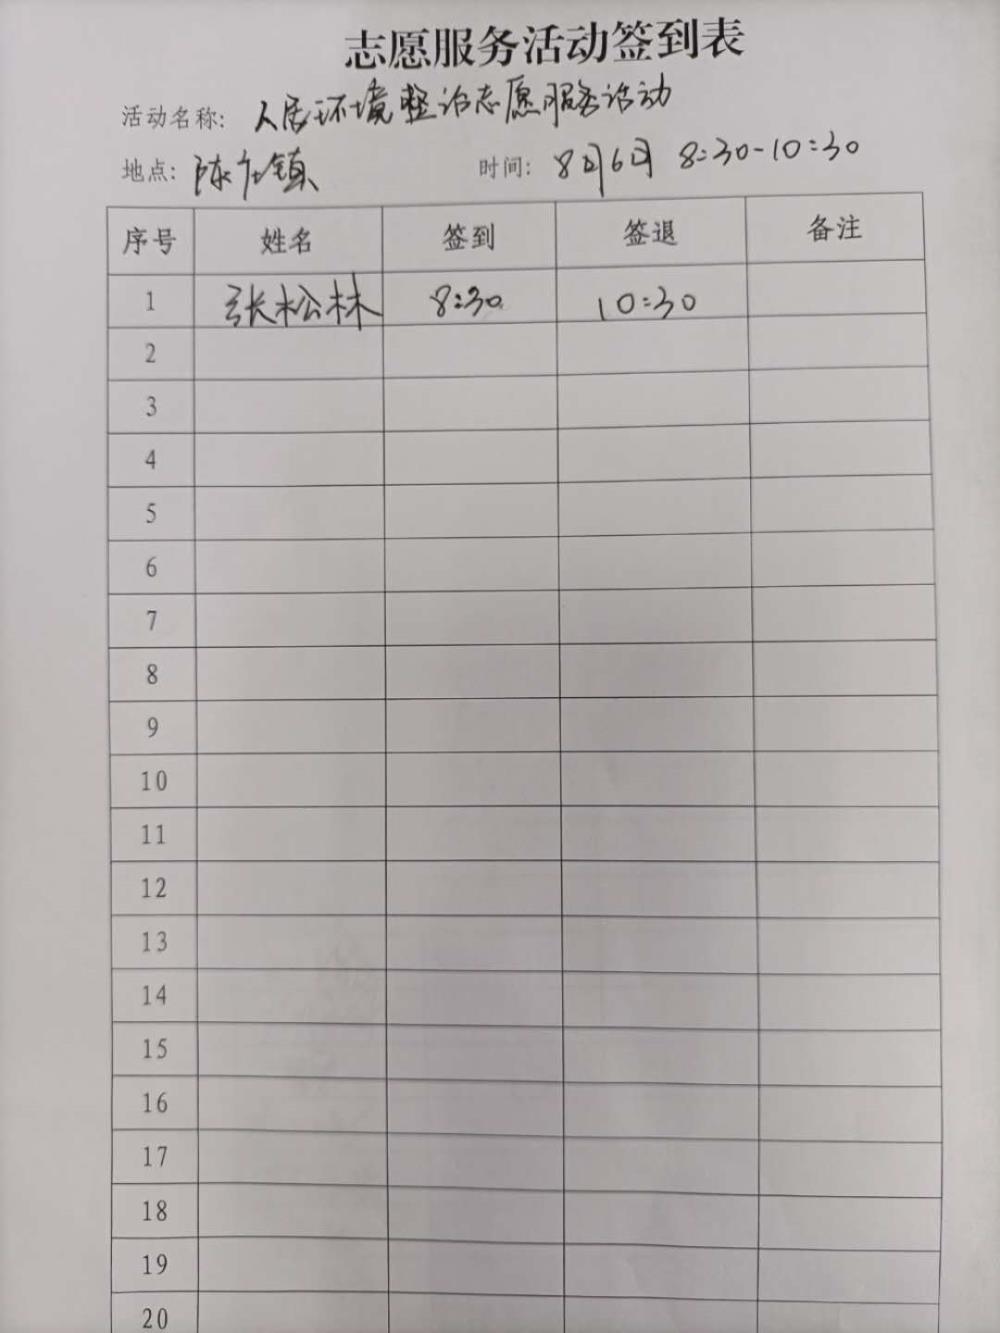 志愿服务活动签到表
活动名称: 人居环境整治志愿服务活动
地点: 陈庄镇 时间: 8月6日 8:30-10:30
序号 姓名 签到 签退 备注
1 张松林 8:30 10:30
2
3
4
5
6
7
8
9
10
11
12
13
14
15
16
17
18
19
20